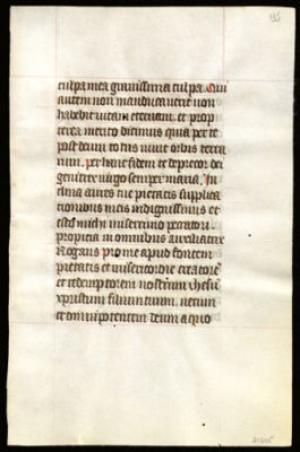 culpa mea grauissima culpa. Qui
autem non manducauerit non
habebit uitam eternam. et prop
terea merito dicimus quia per te
post deum totus uiuit orbis terra
rum. per hanc fidem te deprecor dei
genitrix uirgo semper maria. In
clina aures tue pietatis supplica
tionibus meis indignissimis et
esto michi miserrimo peccatori
propicia in omnibus auxiliatrix
Rogans pro me apud fontem
pietatis et misericordie creatorem
et redemptorem nostrum ihesum
xpristum filium tuum. uerum
et omnipotentem deum a quo